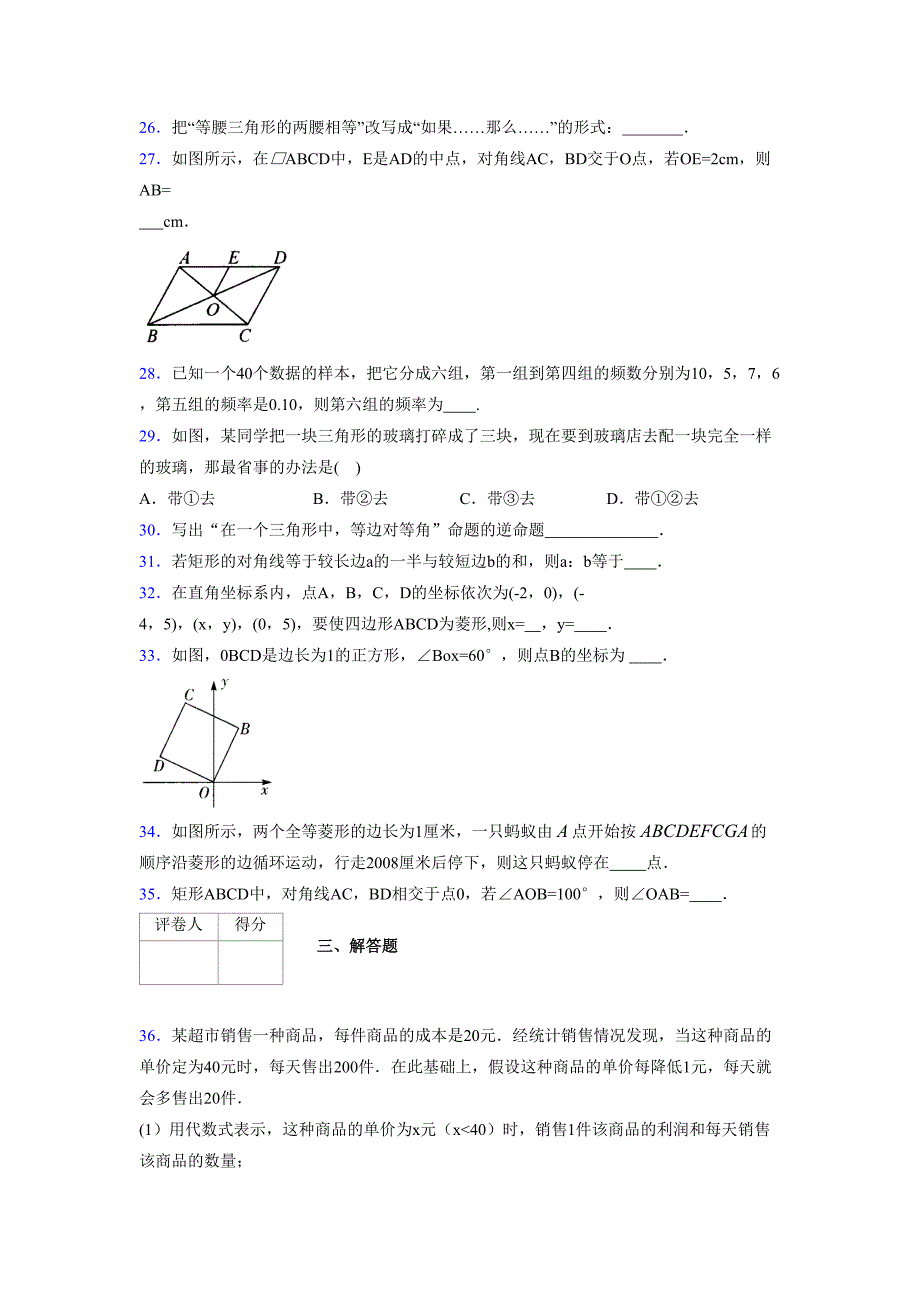 26．把“等腰三角形的两腰相等”改写成“如果……那么……”的形式：________．
27．如图所示，在□ABCD中，E是AD的中点，对角线AC，BD交于O点，若OE=2cm，则
AB=
___cm．
A E D
O
B C
28．已知一个40个数据的样本，把它分成六组，第一组到第四组的频数分别为10，5，7，6
，第五组的频率是0.10，则第六组的频率为____．
29．如图，某同学把一块三角形的玻璃打碎成了三块，现在要到玻璃店去配一块完全一样
的玻璃，那最省事的办法是( )
A．带①去 B．带②去 C．带③去 D．带①②去
30．写出“在一个三角形中，等边对等角”命题的逆命题______________．
31．若矩形的对角线等于较长边a的一半与较短边b的和，则a：b等于____．
32．在直角坐标系内，点A，B，C，D的坐标依次为(-2，0)，(-
4，5)，(x，y)，(0，5)，要使四边形ABCD为菱形,则x=__，y=____．
33．如图，0BCD是边长为1的正方形，∠Box=60°，则点B的坐标为 ____．
y
C
B
D
O x
34．如图所示，两个全等菱形的边长为1厘米，一只蚂蚁由A点开始按ABCDEFCGA的
顺序沿菱形的边循环运动，行走2008厘米后停下，则这只蚂蚁停在_____点．
35．矩形ABCD中，对角线AC，BD相交于点0，若∠AOB=100°，则∠OAB=____．
评卷人 得分
三、解答题
36．某超市销售一种商品，每件商品的成本是20元．经统计销售情况发现，当这种商品的
单价定为40元时，每天售出200件．在此基础上，假设这种商品的单价每降低1元，每天就
会多售出20件．
(1）用代数式表示，这种商品的单价为x元（x<40）时，销售1件该商品的利润和每天销售
该商品的数量；